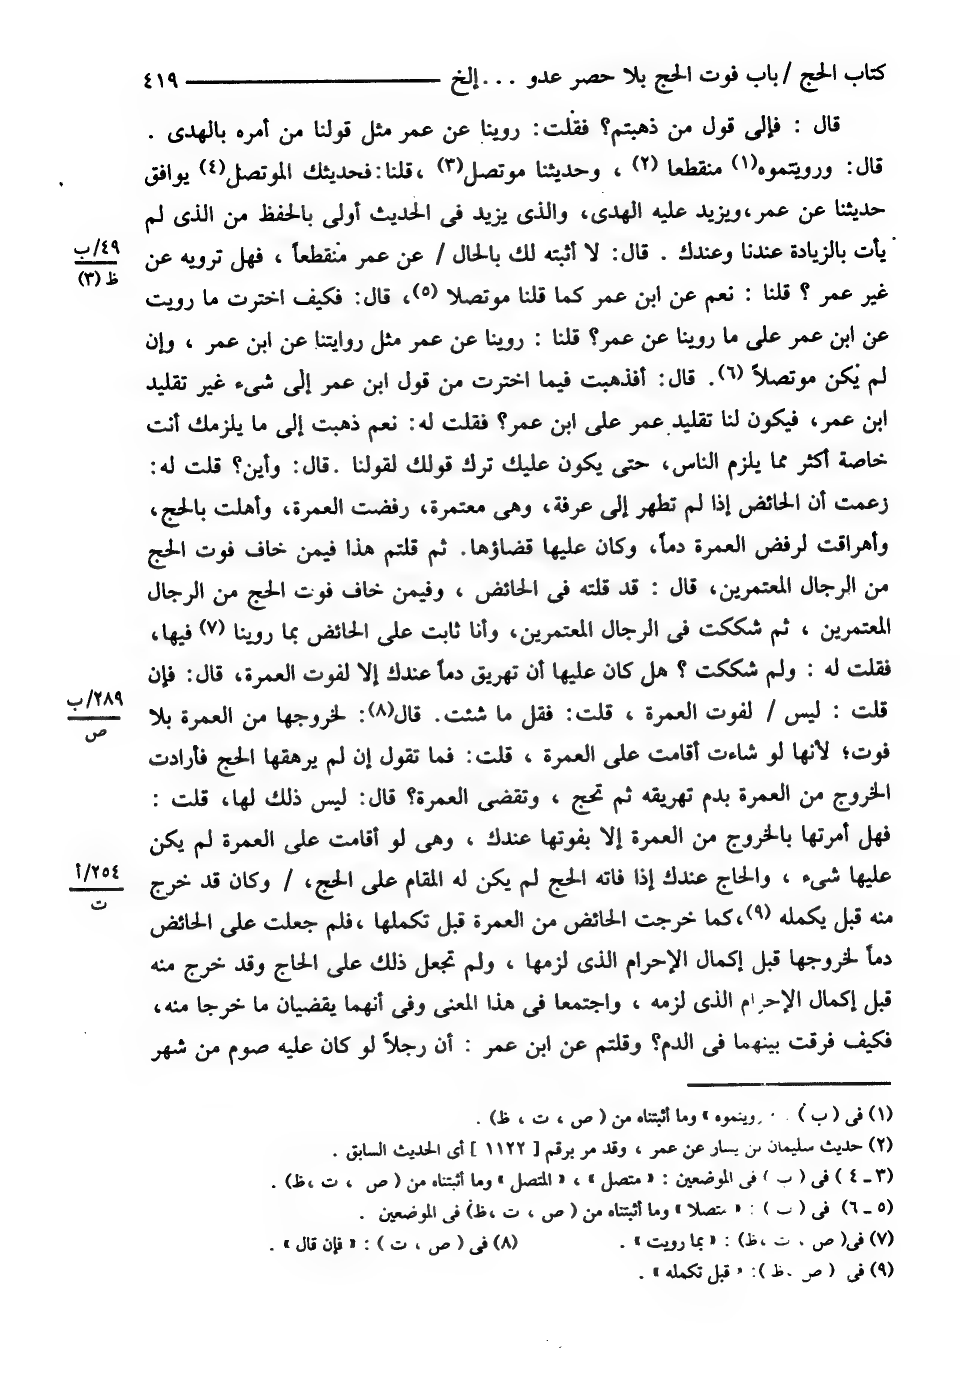 كتاب الحج / باب فوت الحج بلا حصر عدو ... إلخ ٤١٩
قال : فإلى قول من ذهبتم؟ فقلت: روينا عن عمر مثل قولنا من أمره بالهدى .
قال: ورويتموه(١) منقطعا (٢) ، وحديثنا موتصل(٣) ،قلنا:فحديثك الموتصل(٤) يوافق
حديثنا عن عمر،ويزيد عليه الهدى، والذى يزيد فى الحديث أولى بالحفظ من الذى لم
يأت بالزيادة عندنا وعندك . قال: لا أثبته لك بالحال / عن عمر منقطعاً ، فهل ترويه عن
٤٩/ب
ظ (٣)
غير عمر ؟ قلنا : نعم عن ابن عمر كما قلنا موتصلا (٥)، قال: فكيف اخترت ما رويت
عن ابن عمر على ما روينا عن عمر؟ قلنا : روينا عن عمر مثل روايتنا عن ابن عمر ، وإن
لم يكن موتصلاً (٦). قال: أفذهبت فيما اخترت من قول ابن عمر إلى شىء غير تقليد
ابن عمر، فيكون لنا تقليد عمر على ابن عمر؟ فقلت له: نعم ذهبت إلى ما يلزمك أنت
خاصة أكثر مما يلزم الناس، حتى يكون عليك ترك قولك لقولنا .قال: وأين؟ قلت له:
زعمت أن الحائض إذا لم تطهر إلى عرفة، وهى معتمرة، رفضت العمرة، وأهلت بالحج،
وأهراقت لرفض العمرة دماً، وكان عليها قضاؤها. ثم قلتم هذا فيمن خاف فوت الحج
من الرجال المعتمرين، قال : قد قلته فى الحائض ، وفيمن خاف فوت الحج من الرجال
المعتمرين ، ثم شككت فى الرجال المعتمرين، وأنا ثابت على الحائض بما روينا (٧) فيها،
فقلت له : ولم شككت ؟ هل كان عليها أن تهريق دماً عندك إلا لفوت العمرة، قال: فإن
قلت : ليس / لفوت العمرة ، قلت: فقل ما شئت. قال(٨): لخروجها من العمرة بلا
٢٨٩/ب
ص
فوت؛ لأنها لو شاءت أقامت على العمرة ، قلت: فما تقول إن لم يرهقها الحج فأرادت
الخروج من العمرة بدم تهريقه ثم تحج ، وتقضى العمرة؟ قال: ليس ذلك لها، قلت :
فهل أمرتها بالخروج من العمرة إلا بفوتها عندك ، وهى لو أقامت على العمرة لم يكن
عليها شىء ، والحاج عندك إذا فاته الحج لم يكن له المقام على الحج، / وكان قد خرج
٢٥٤/أ
ت
منه قبل يكمله (٩)،كما خرجت الحائض من العمرة قبل تكملها ،فلم جعلت على الحائض
دماً لخروجها قبل إكمال الإحرام الذى لزمها ، ولم تجعل ذلك على الحاج وقد خرج منه
قبل إكمال الإحرام الذى لزمه ، واجتمعا فى هذا المعنى وفى أنهما يقضيان ما خرجا منه،
فكيف فرقت بينهما فى الدم؟ وقلتم عن ابن عمر : أن رجلاً لو كان عليه صوم من شهر
(١) فى ( ب ) : وينموه » وما أثبتناه من ( ص ، ت ، ظ) .
(٢) حديث سليمان بن يسار عن عمر ، وقد مر برقم [ ١١٢٢ ] أى الحديث السابق .
(٣ ـ ٤ ) فى ( ب ) فى الموضعين : « متصل » ، « المتصل » وما أثبتناه من ( ص ، ت ،ظ) .
(٥ ـ ٦) فى ( ب ) : « متصلا » وما أثبتناه من ( ص ، ت ،ظ) فى الموضعين .
(٧) فى( ص ، ت ،ظ) : « بما رويت » . (٨) فى ( ص ، ت ) : « فإن قال » .
(٩) فى ( ص ،ظ ): « قبل تكمله » .